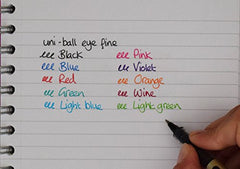 uni-ball eye fine
Black Pink
Blue Violet
Red Orange
Green Wine
Light blue Light green